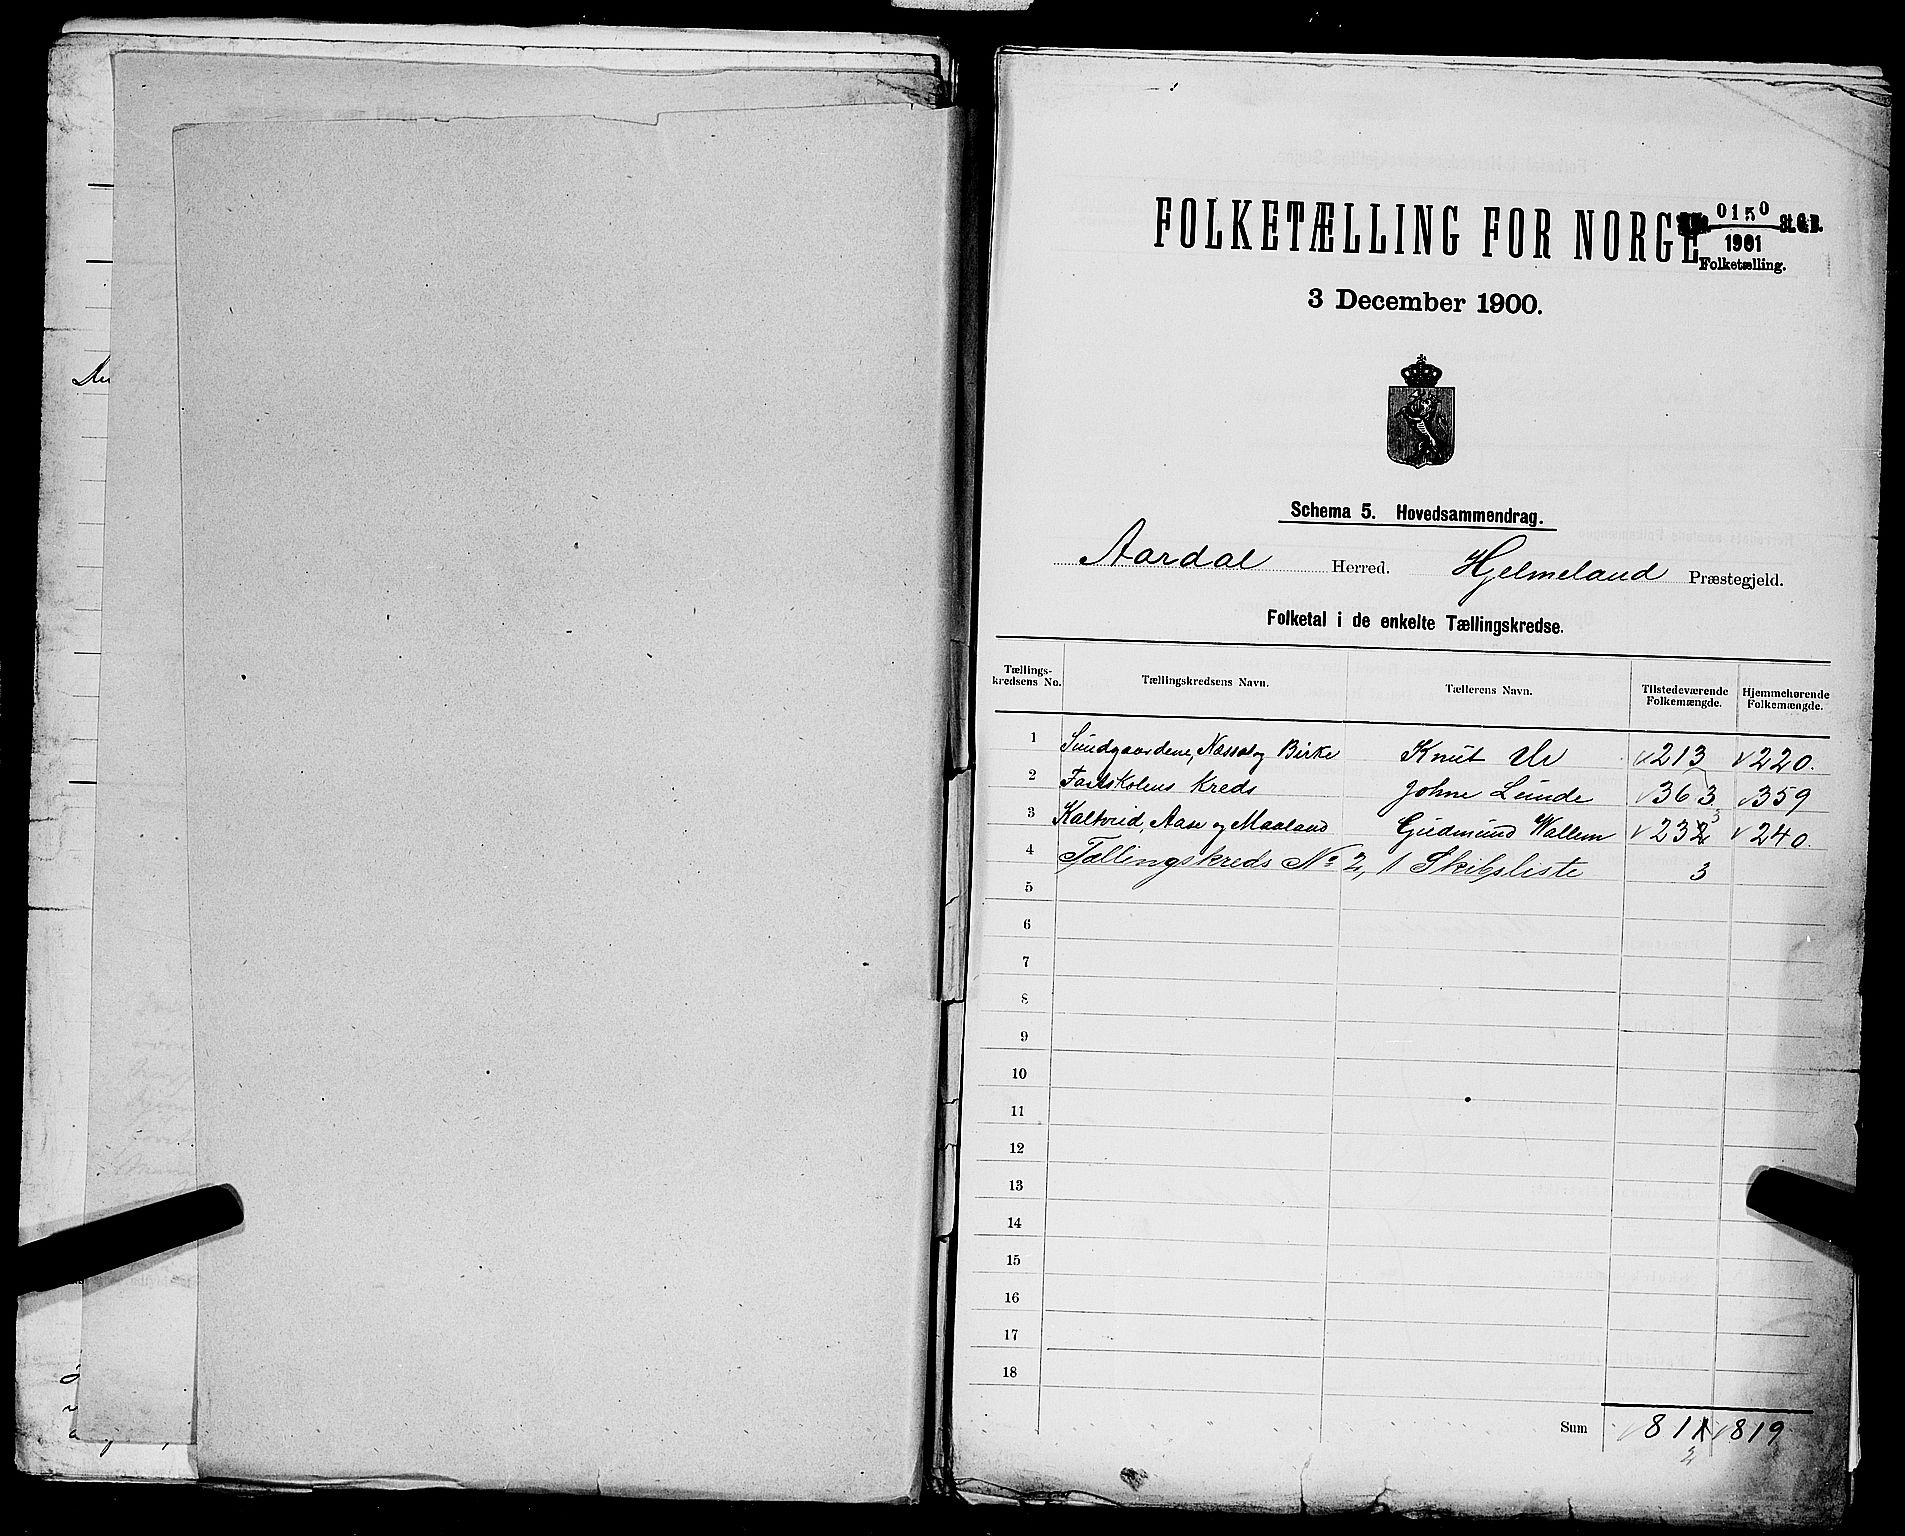 FOLKETÆLLING FOR NORGE
0150
1901
St. C. B.
Folketælling.
3 December 1900.
Schema 5. Hovedsammendrag.
Aardal Herred. Hjelmeland Præstegjeld.
Folketal i de enkelte Tællingskredse.
Tællings-kredsens No. Tællingskredsens Navn. Tællerens Navn. Tilstedeværende Folkemængde. Hjemmehørende Folkemængde.
1 Sundgaardene, Nessa og Birke Knut Ur 213 220.
2 Fastskolens Kreds Johne Lunde 363 359
3 Kaltveid, Aase og Maaland Gudmund Wallem 232 3 240.
4 Tællingskreds No 2, 1 Skibsliste 3
5
6
7
8
9
10
11
12
13
14
15
16
17
18
Sum 811 819
2